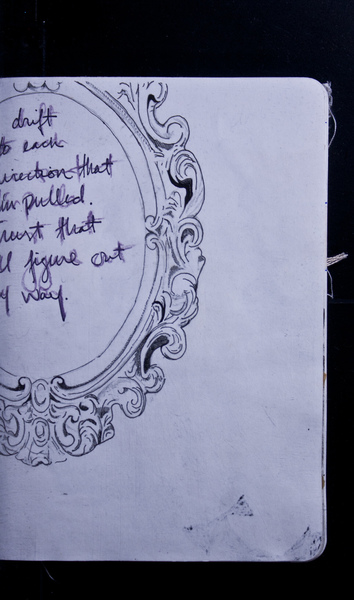 drift
to each
direction that
I'm pulled.
trust that
I'll figure out
my way.